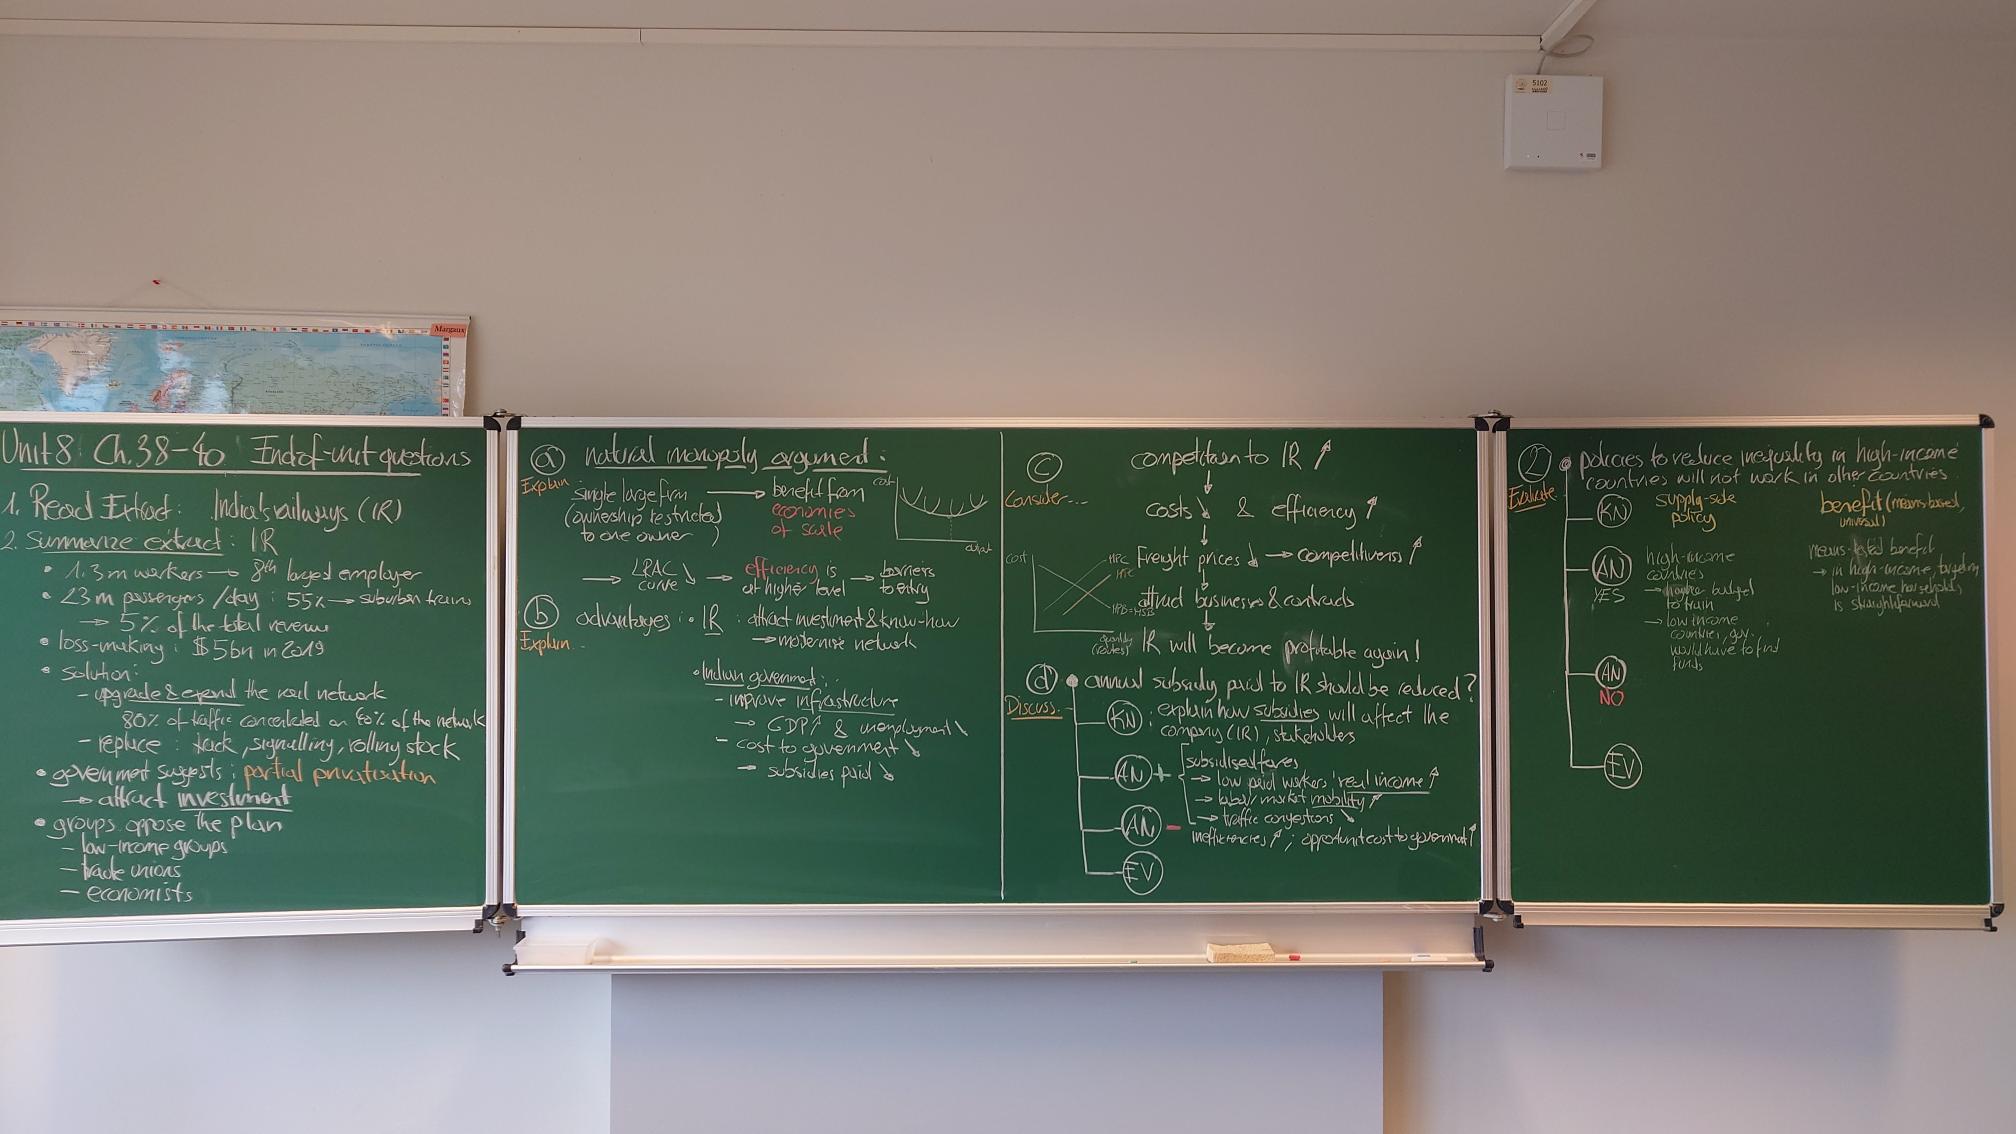 Margaux
5102
Unit 8 Ch. 38-40 End-of-unit questions
1. Read Extract: India's railways (IR)
2. Summarize extract: IR
• 1.3m workers → 8th largest employer
• 23m passengers /day: 55% → suburban trains
→ 5% of the total revenue
• loss-making: $5bn in 2019
• solution:
- upgrade & expand the rail network
80% of traffic concentrated on 60% of the network
- replace: track, signalling, rolling stock
• government suggests: partial privatisation
→ attract investment
• groups oppose the plan
- low-income groups
- trade unions
- economists
a natural monopoly argument:
Explain
single large firm → benefit from
(ownership restricted economies
to one owner) of scale
cost
output
→ LRAC ↘ → efficiency is → barriers
curve at higher level to entry
b advantages: • IR: attract investment & know-how
Explain...
→ modernise network
• Indian government:
- improve infrastructure
→ GDP↑ & unemployment ↘
- cost to government ↘
→ subsidies paid ↘
c competition to IR ↗
Consider...
↓
costs ↘ & efficiency ↗
↓
Freight prices ↘ → competitiveness ↗
↓
attract businesses & contracts
↓
IR will become profitable again!
cost
MPC
quantity
(routes)
d • annual subsidy paid to IR should be reduced?
Discuss.
KN: explain how subsidies will affect the
company (IR), stakeholders
AN + subsidised fares
→ low paid workers' real income ↗
→ labour market mobility ↗
→ traffic congestions ↘
AN - inefficiencies ↗; opportunit cost to governmnt ↑
EV
2 • policies to reduce inequality in high-income
countries will not work in other countries
Evaluate
KN supply-side policy
benefit (means-based, universal)
AN YES
high-income
countries
→ higher budget
to train
→ low income
countries, gov.
would have to find
funds
means-tested benefit
→ in high-income, targeting
low-income households
is straightforward
AN
NO
EV